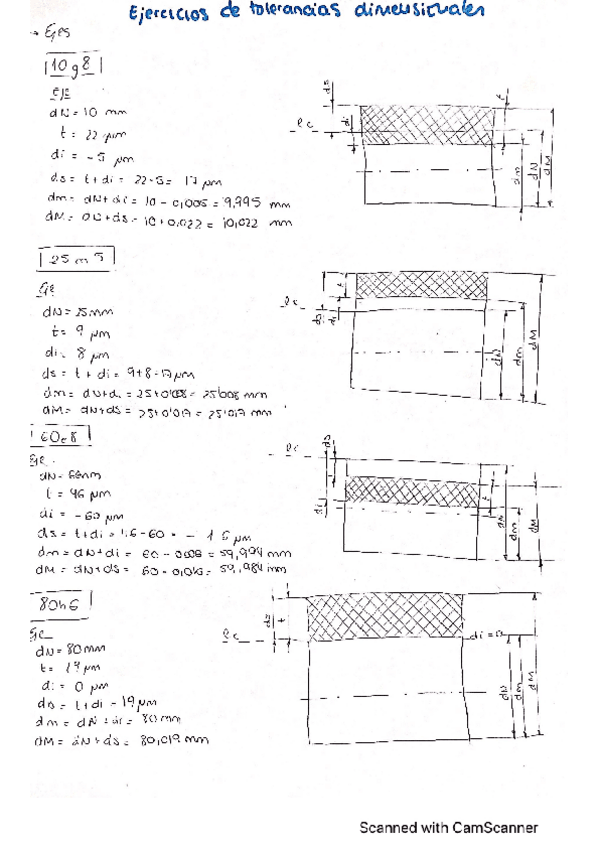 Ejercicios de tolerancias dimensionales
→ Ejes
10 g8
eje
dN = 10 mm
t = 22 µm
di = -5 µm
ds = t + di = 22-5 = 17 µm
dm = dN + di = 10 - 0,005 = 9,995 mm
dM = dN + ds = 10 + 0,022 = 10,022 mm
ds
di
t
lc
dm
dN
dM
25 m 5
dN = 25 mm
t = 9 µm
di = 8 µm
ds = t + di = 9+8 = 17 µm
dm = dN + di = 25+0'008 = 25'008 mm
dM = dN + ds = 25+0'017 = 25'017 mm
lc
t
ds
di
dN
dm
dM
60e8
t = 46 µm
di = -60 µm
dm = dN + di =
dM = dN + ds =
lc
ds
di
t
dN
dm
dM
80h6
dN = 80 mm
t = 19 µm
di = 0 µm
ds = t + di = 19 µm
dm = dN + di = 80 mm
dM = dN + ds = 80,019 mm
lc
ds
t
di = 0
dN
dm
dM
Scanned with CamScanner